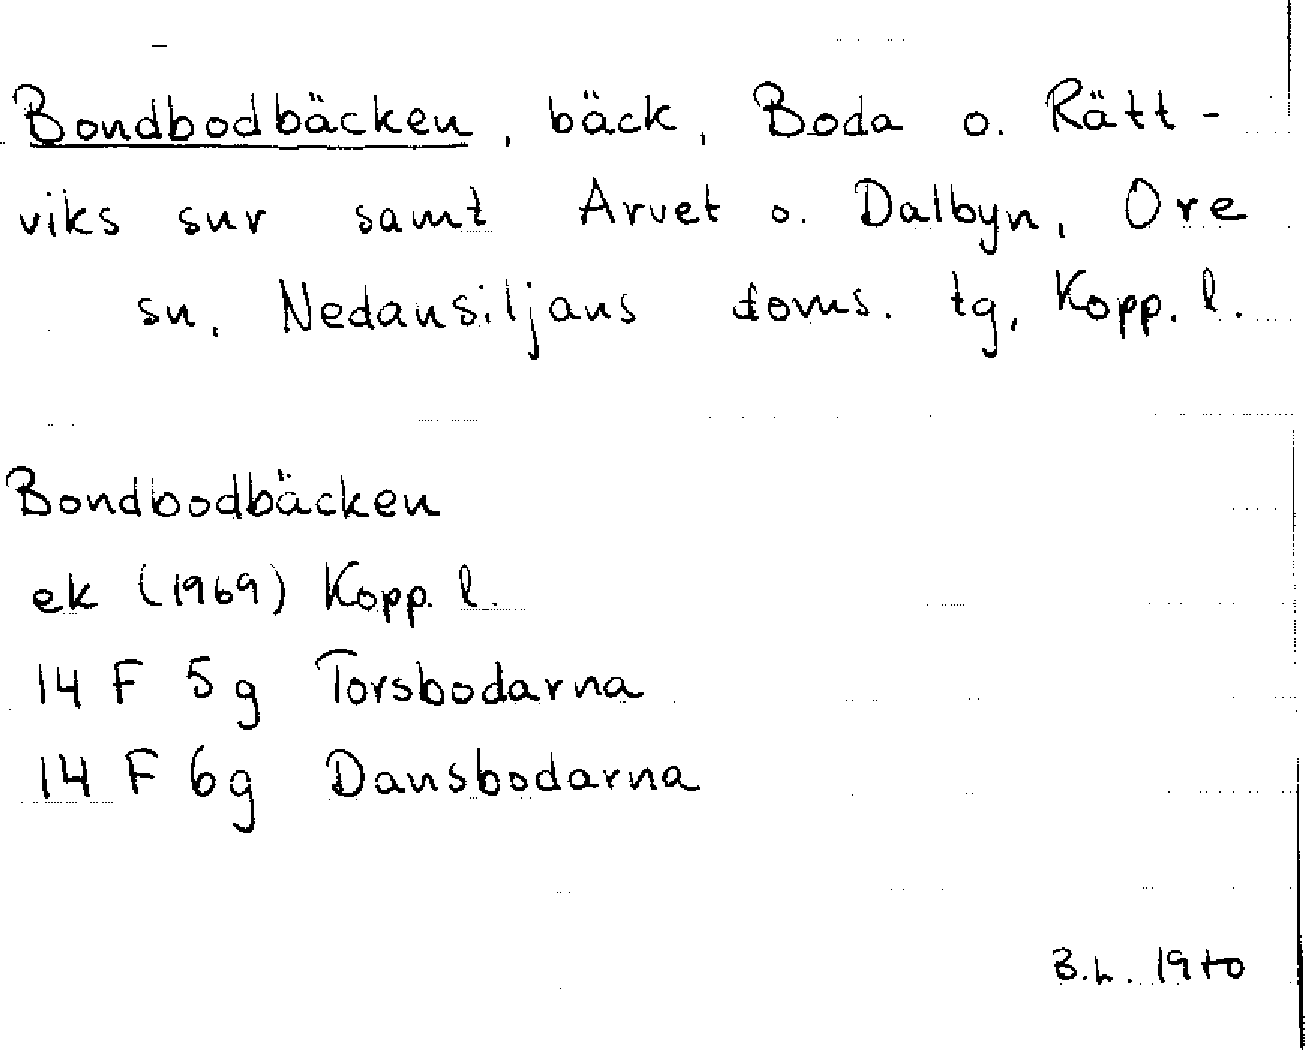 Bondbodbäcken, bäck, Boda o. Rätt-
viks snr samt Arvet o. Dalbyn, Ore
sn, Nedansiljans doms. tg, Kopp. l.
Bondbodbäcken
ek (1969) Kopp. l.
14 F 5g Torsbodarna
14 F 6g Dansbodarna
B.L. 1970